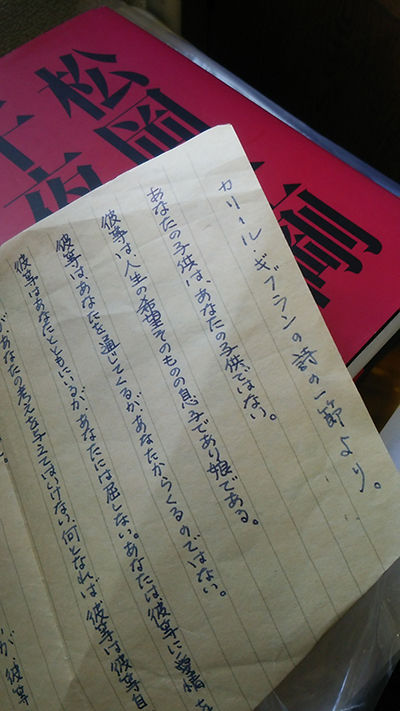 松岡
剛
千夜
カリール・ギブランの詩の一節より。
あなたの子供は、あなたの子供ではない。
彼等は、人生の希望そのものの息子であり娘である。
彼等は、あなたを通じてくるが、あなたからくるのではない。
彼等はあなたとともにいるが、あなたには屈しない。あなたは、彼等に愛情を
があなたの考えを与えてはいけない、何となれば、彼等は彼等自
が、彼等